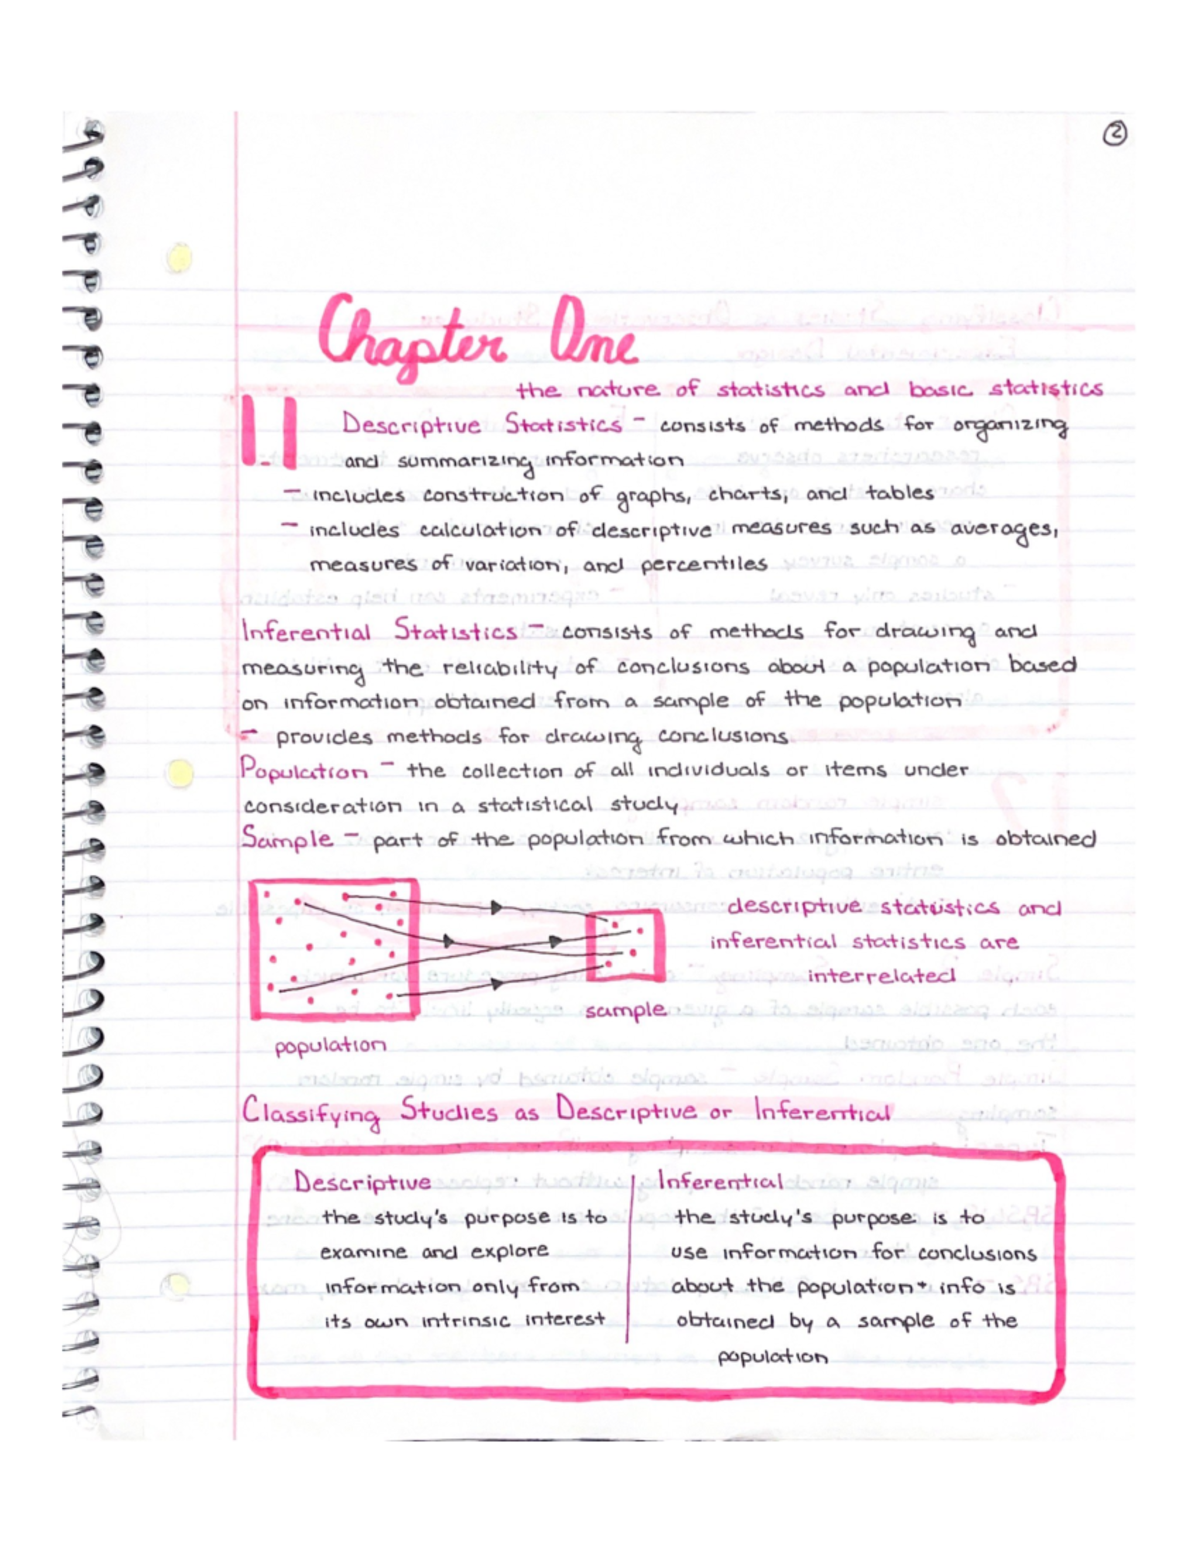 ②
Chapter One
the nature of statistics and basic statistics
1.1 Descriptive Statistics - consists of methods for organizing
and summarizing information
- includes construction of graphs, charts, and tables
- includes calculation of descriptive measures such as averages,
measures of variation, and percentiles
Inferential Statistics - consists of methods for drawing and
measuring the reliability of conclusions about a population based
on information obtained from a sample of the population
- provides methods for drawing conclusions
Population - the collection of all individuals or items under
consideration in a statistical study
Sample - part of the population from which information is obtained
descriptive statistics and
inferential statistics are
interrelated
sample
population
Classifying Studies as Descriptive or Inferential
Descriptive
the study's purpose is to
examine and explore
information only from
its own intrinsic interest
Inferential
the study's purpose is to
use information for conclusions
about the population + info is
obtained by a sample of the
population